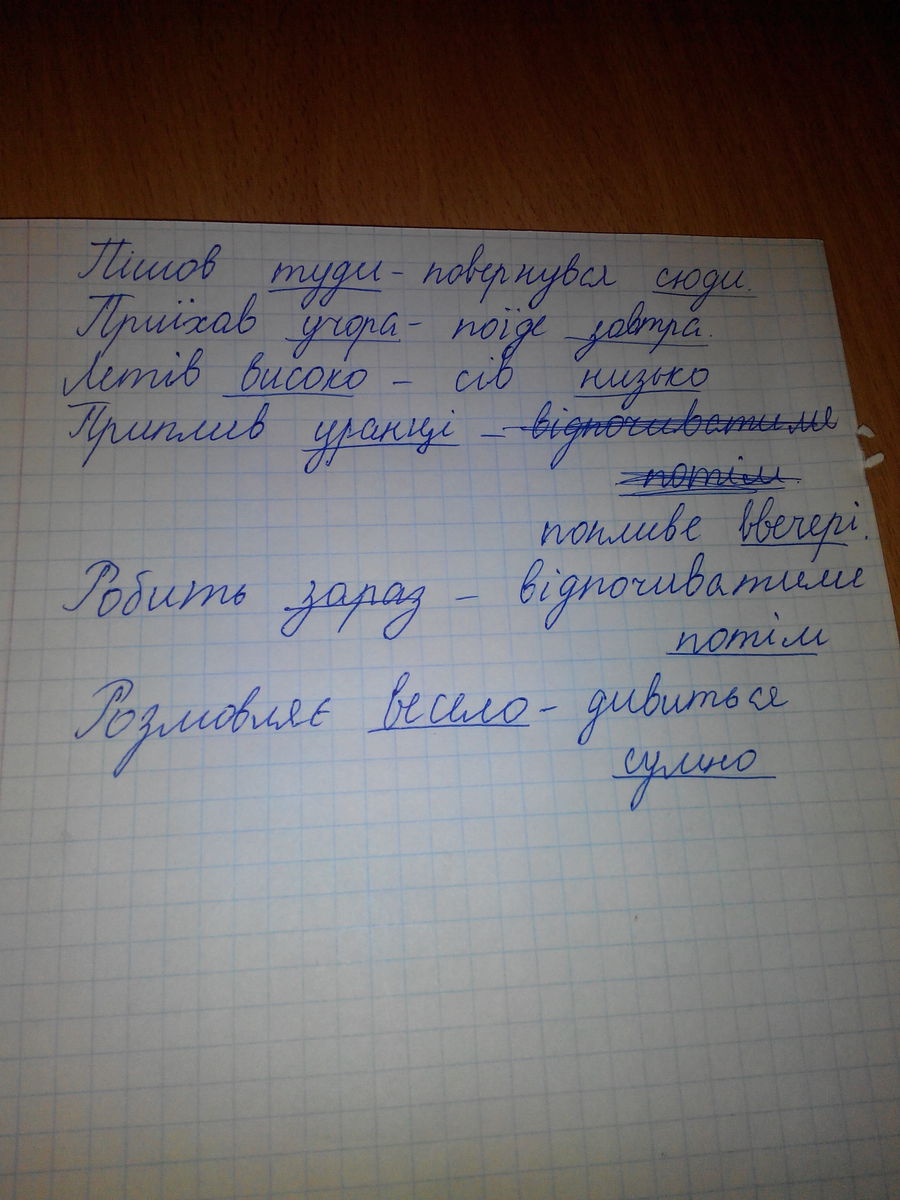 Пішов туди - повернувся сюди.
Приїхав учора - поїде завтра.
Летів високо - сів низько
Приплив уранці - відпочиватиме
потім
попливе ввечері.
Робить зараз - відпочиватиме
потім
Розмовляє весело - дивиться
сумно